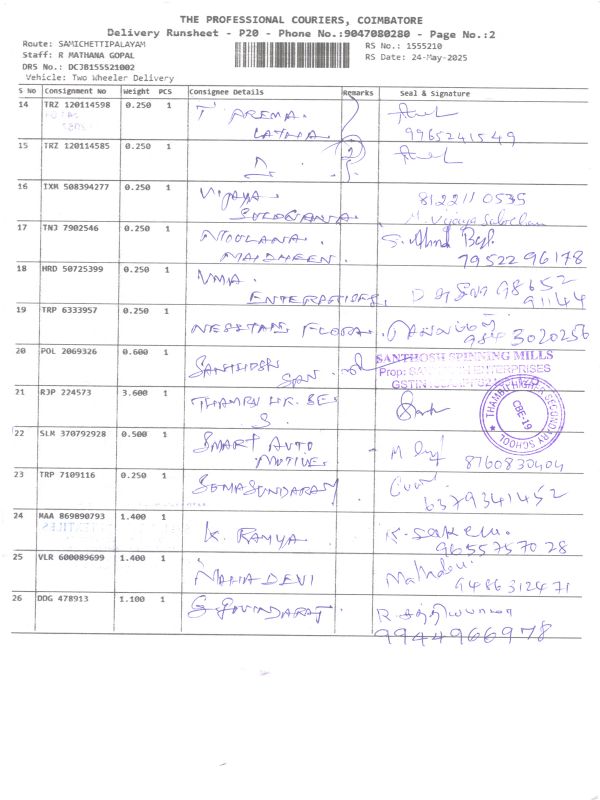 THE PROFESSIONAL COURIERS, COIMBATORE
Delivery Runsheet - P20 - Phone No.:9047080280 - Page No.:2
Route: SAMICHETTIPALAYAM
RS No.: 1555210
Staff: R MATHANA GOPAL
RS Date: 24-May-2025
DRS No.: DCJB155521002
Vehicle: Two Wheeler Delivery
S No Consignment No Weight PCS Consignee Details Remarks Seal & Signature
14 TRZ 120114598 0.250 1 T AREMA
LATHA 9965241549
15 TRZ 120114585 0.250 1
16 IXM 508394277 0.250 1 Vijaya 8122110535
SULOGANA M. Vijaya
17 TNJ 7902546 0.250 1 NOOLANA
MAIDHEEN 7952296178
18 HRD 50725399 0.250 1 UMA 98652
ENTERPRISES 91144
19 TRP 6333957 0.250 1 FLORA
984 3020256
20 POL 2069326 0.600 1 SANTHOSH SPINNING MILLS
21 RJP 224573 3.600 1 THAMBU HR. SEC
S
THAMBU HIGHER SECONDARY SCHOOL
CBE-19
22 SLM 370792928 0.500 1 SMART AUTO
MOTIVE 8760830404
23 TRP 7109116 0.250 1 SOMASUNDARAM
6379341452
24 MAA 869890793 1.400 1 K. RAMYA
9655757028
25 VLR 600089699 1.400 1 MAHADEVI
9486312471
26 DDG 478913 1.100 1 G GOVINDARAJ
9944966978